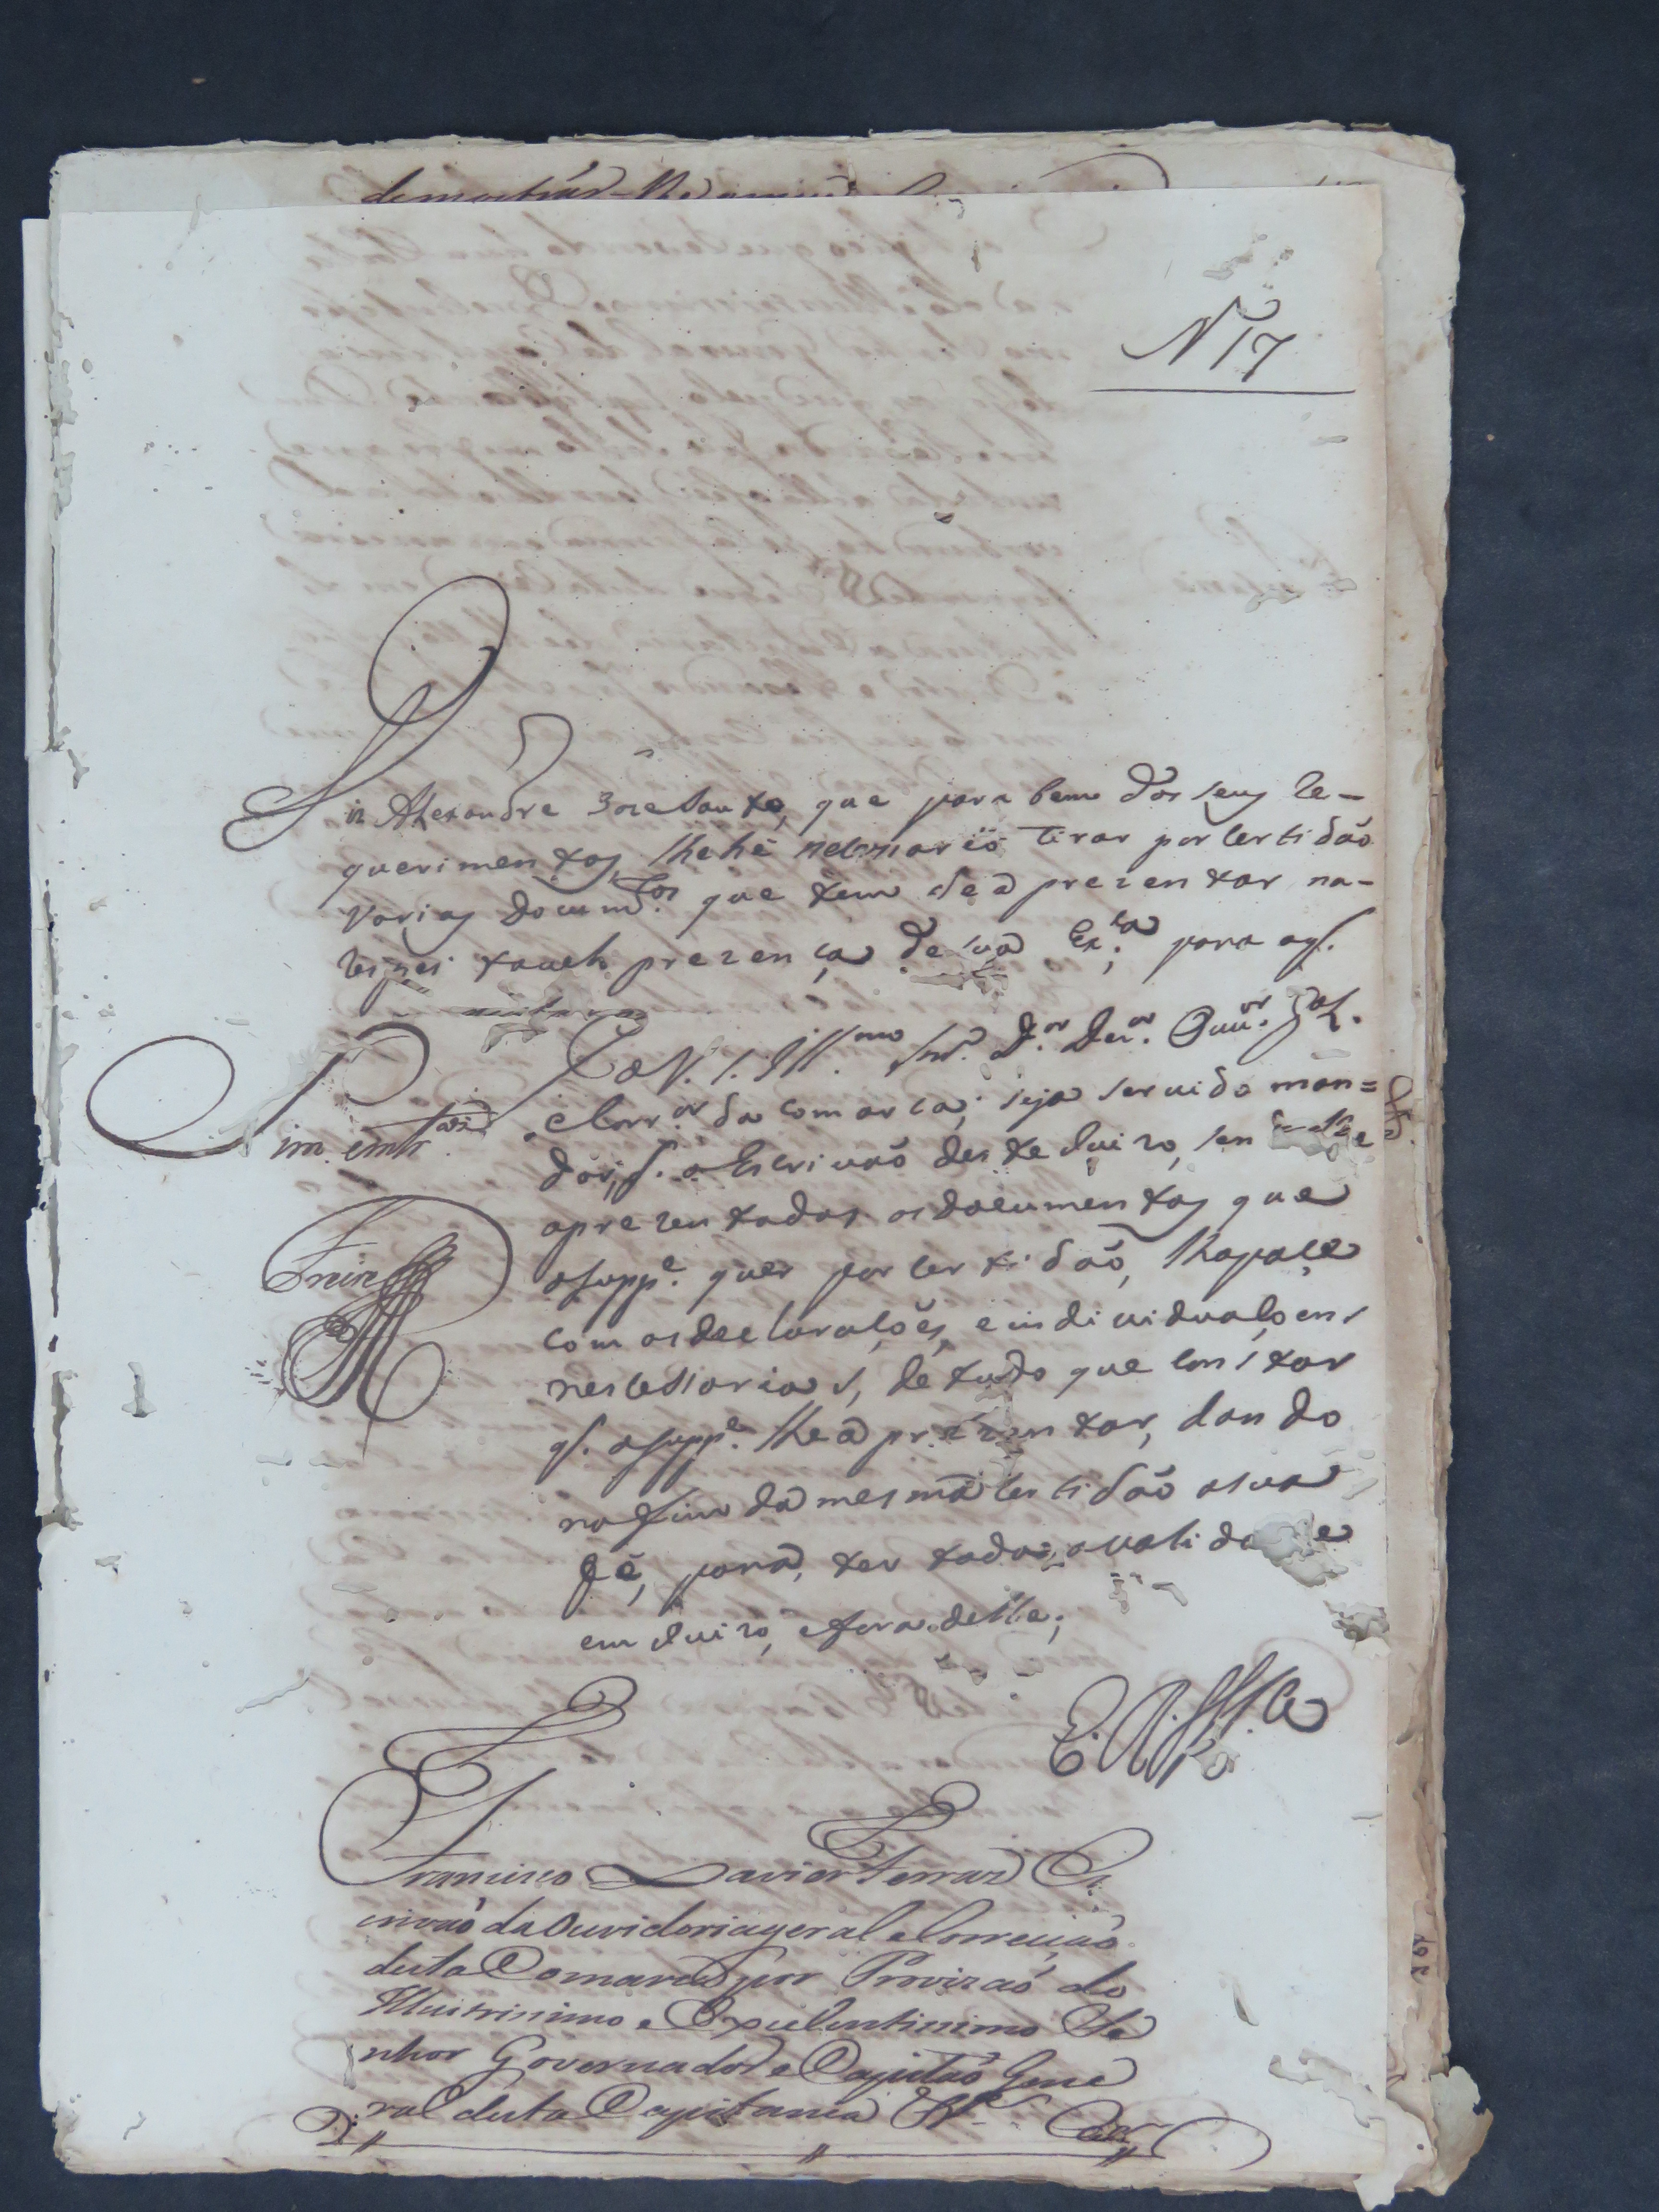 N 17
Diz Alexandre Joze Souto, que para bem dos seus Re-
querimentos, lhe hé necesario tirar por Certidaõ
varios Docum.tos que tem de aprezentar na
presença de sua Ex.ca para o q.
P. a V. S. Ill.mo Snr. D.or Dez.or Ouv.or g.al
e Corr.or da Comarca, seja servido man=
dar, q. o Escrivaõ deste Juizo, sendo lhe
aprezentados os documentos que
o Supp.e quer por Certidaõ, lha pace
com as declaraçoẽs, e individuaçoens
necessarias, de tudo que constar
q. o Supp.e lhe aprezentar, dando
no fim da mesma Certidaõ a sua
fé, para, ter toda a validade
em Juizo, e fora delle;
P.
Freire
E. R. M.ce
Francisco Xavier Ferraz Es
crivaõ da Ouvidoria geral e Correiçaõ
desta Comarca por Provizaõ do
Illustrissimo e Excelentissimo Se
nhor Governador e Capitaõ Gene
ral desta Capitania